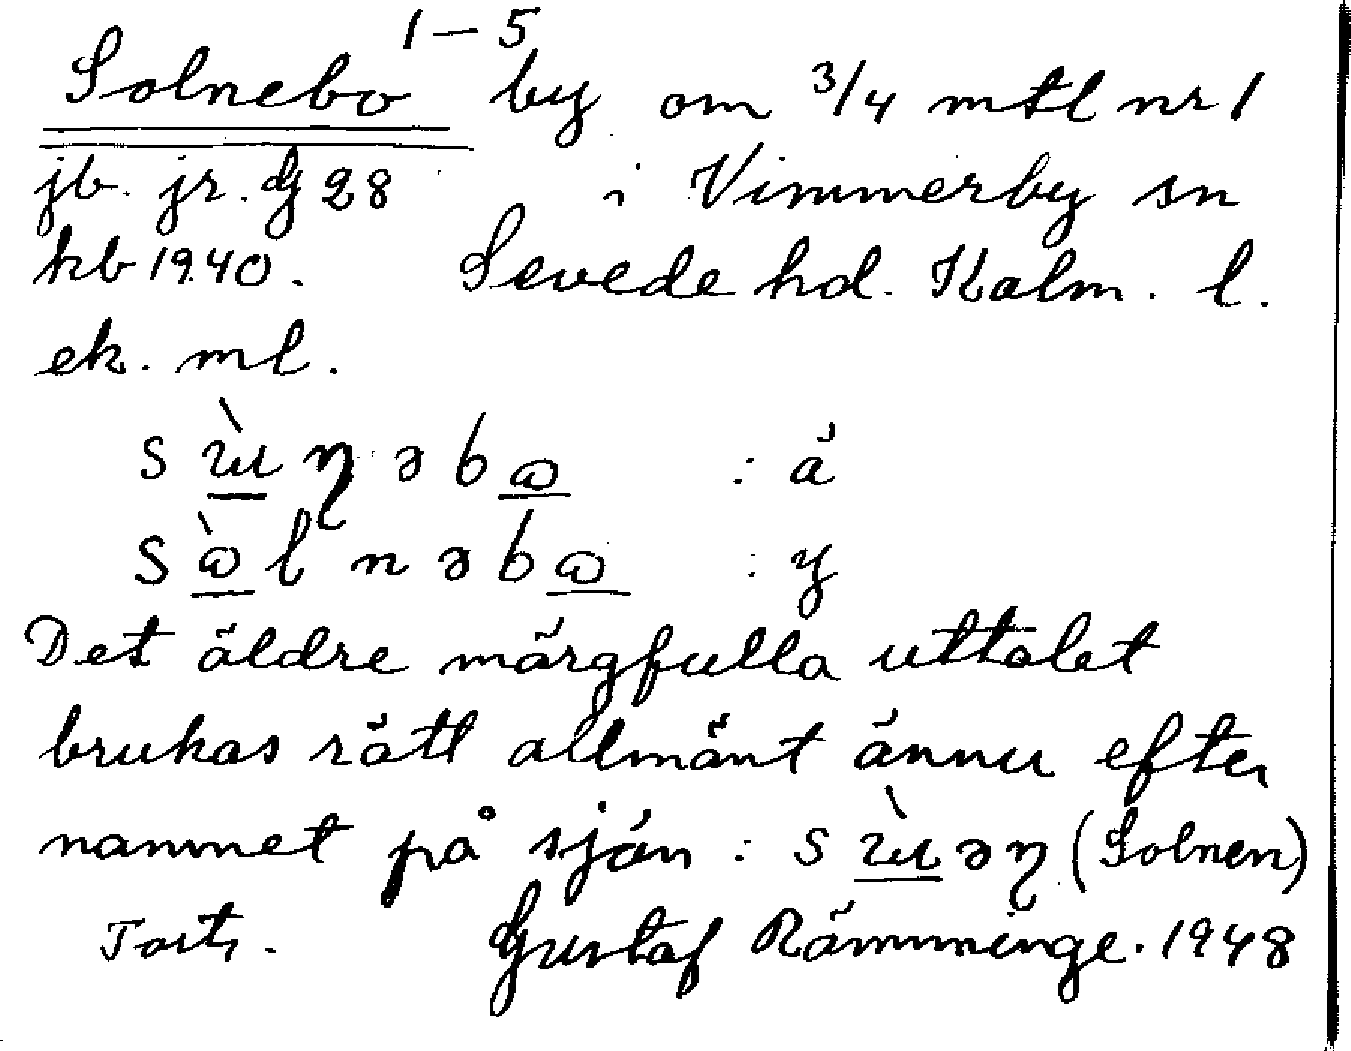 Solnebo 1–5 by om 3/4 mtl nr 1
jb. jr. G 28 i Vimmerby sn
kb 1940. Sevede hd. Kalm. l.
ek. ml.
: ä
: y
Det äldre märgfulla uttalet
brukas rätt allmänt ännu efter
namnet på sjön : (Solnen)
Forts. Gustaf Rämminge. 1948